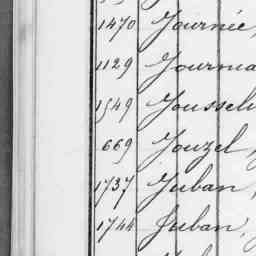 1470 Journée,
1129 Journa
1549 Jousseli
669 Jouzel,
1737 Juban,
1744 Juban,